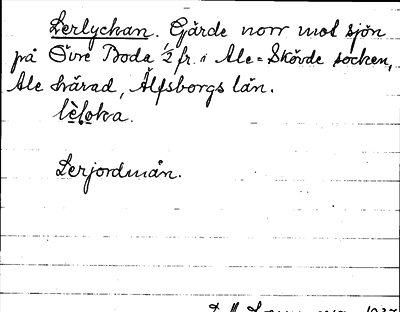 Lerlyckan. Gärde norr mot sjön
på Övre Boda 1/2 fr. i Ale-Skövde socken,
Ale härad, Älfsborgs län.
lèloka.
Lerjordmån.